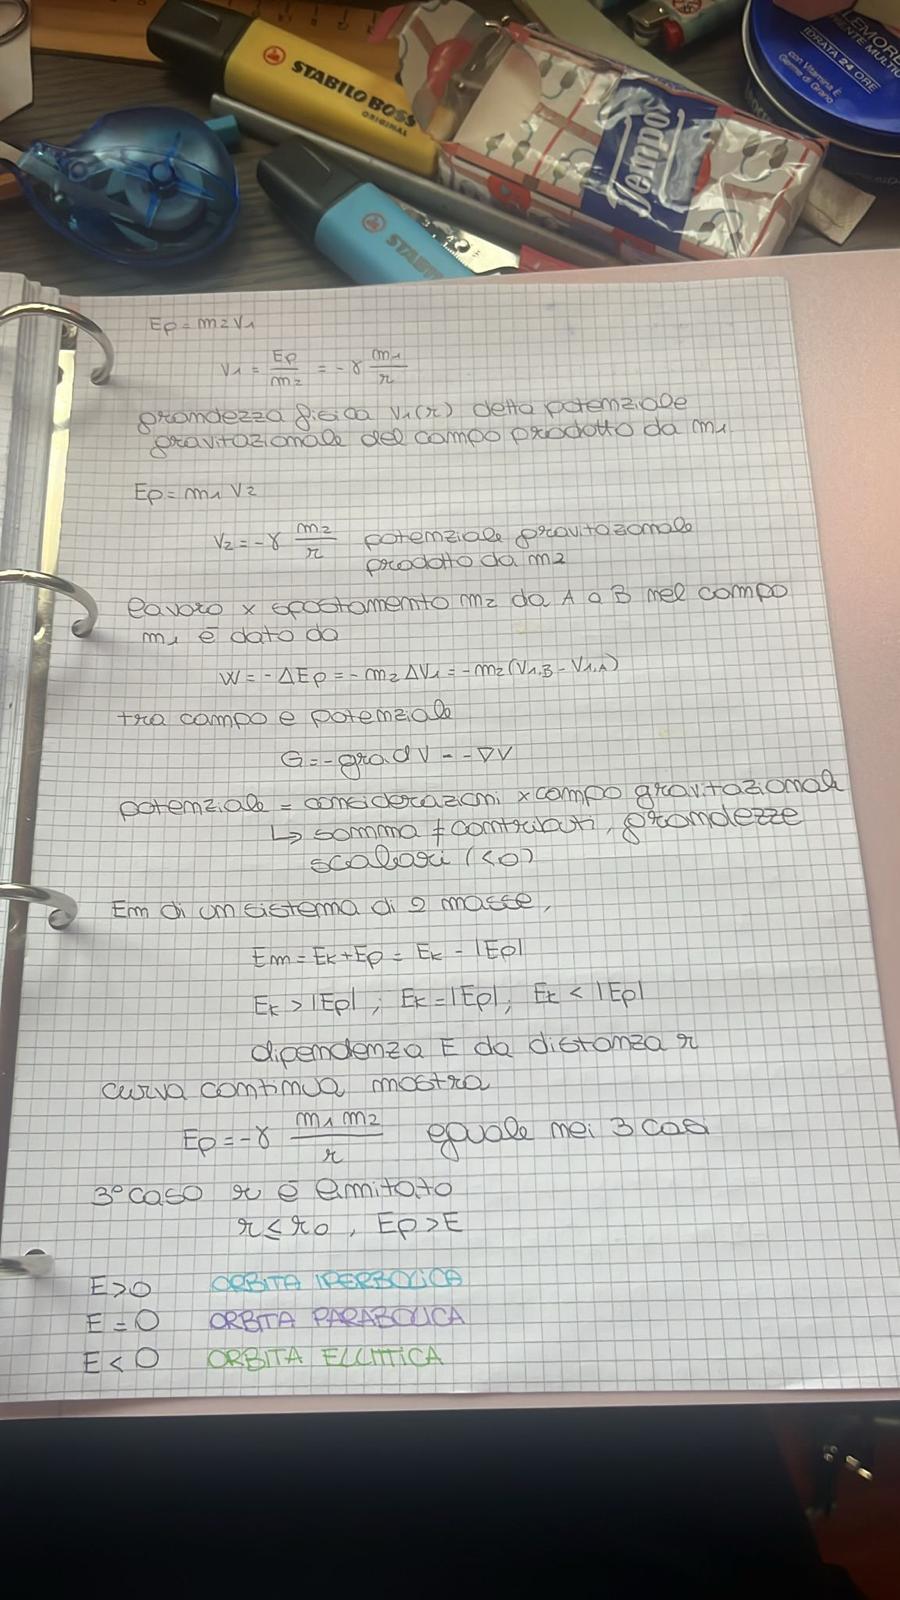 STABILO BOSS
ORIGINAL
STABI
Tempo
IDRATA 24 ORE
con Vitamina E
Germe di Grano
Ep = m2 V1
V1 = Ep/m2 = -γ m1/r
grandezza fisica V1(r) detta potenziale
gravitazionale del campo prodotto da m1.
Ep = m1 V2
V2 = -γ m2/r potenziale gravitazionale
prodotto da m2
lavoro x spostamento m2 da A a B nel campo
m1 è dato da
W = -ΔEp = -m2 ΔV1 = -m2(V1,B - V1,A)
tra campo e potenziale
G = -grad V = -∇V
potenziale = considerazioni x campo gravitazionale
↳ somma ≠ contributi, grandezze
scalari (<0)
Em di un sistema di 2 masse,
Em = Ek + Ep = Ek - |Ep|
Ek > |Ep| ; Ek = |Ep|, Ek < |Ep|
dipendenza E da distanza r
curva continua mostra
Ep = -γ m1 m2/r eguale nei 3 casi
3° caso r è limitato
r ≤ r0, Ep > E
E > 0 ORBITA IPERBOLICA
E = 0 ORBITA PARABOLICA
E < 0 ORBITA ELLITTICA